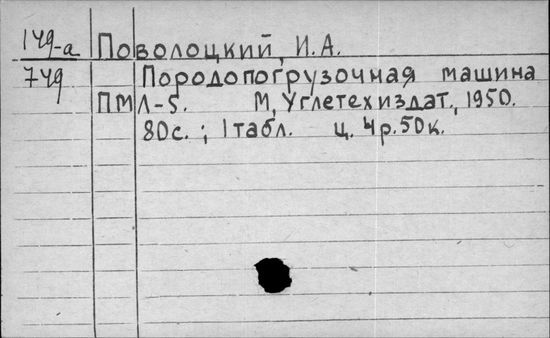 149-а Поволоцкий, И.А.
749 Породопогрузочная машина
ПМЛ-5. М, Углетехиздат, 1950.
80с.; 1 табл. ц. 4р.50к.